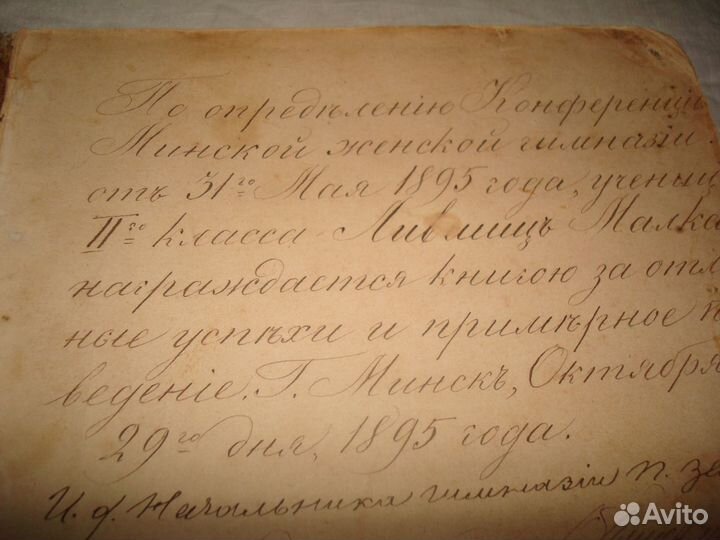 По опредѣленію Конференціи
Минской женской гимназіи
отъ 31го Мая 1895 года, учениц
IIго класса Лившицъ Малка
награждается книгою за отли
ные успѣхи и примѣрное п
веденіе. Г. Минскъ, Октября
29го дня, 1895 года.
И. д. Начальника гимназіи П. З
Avito